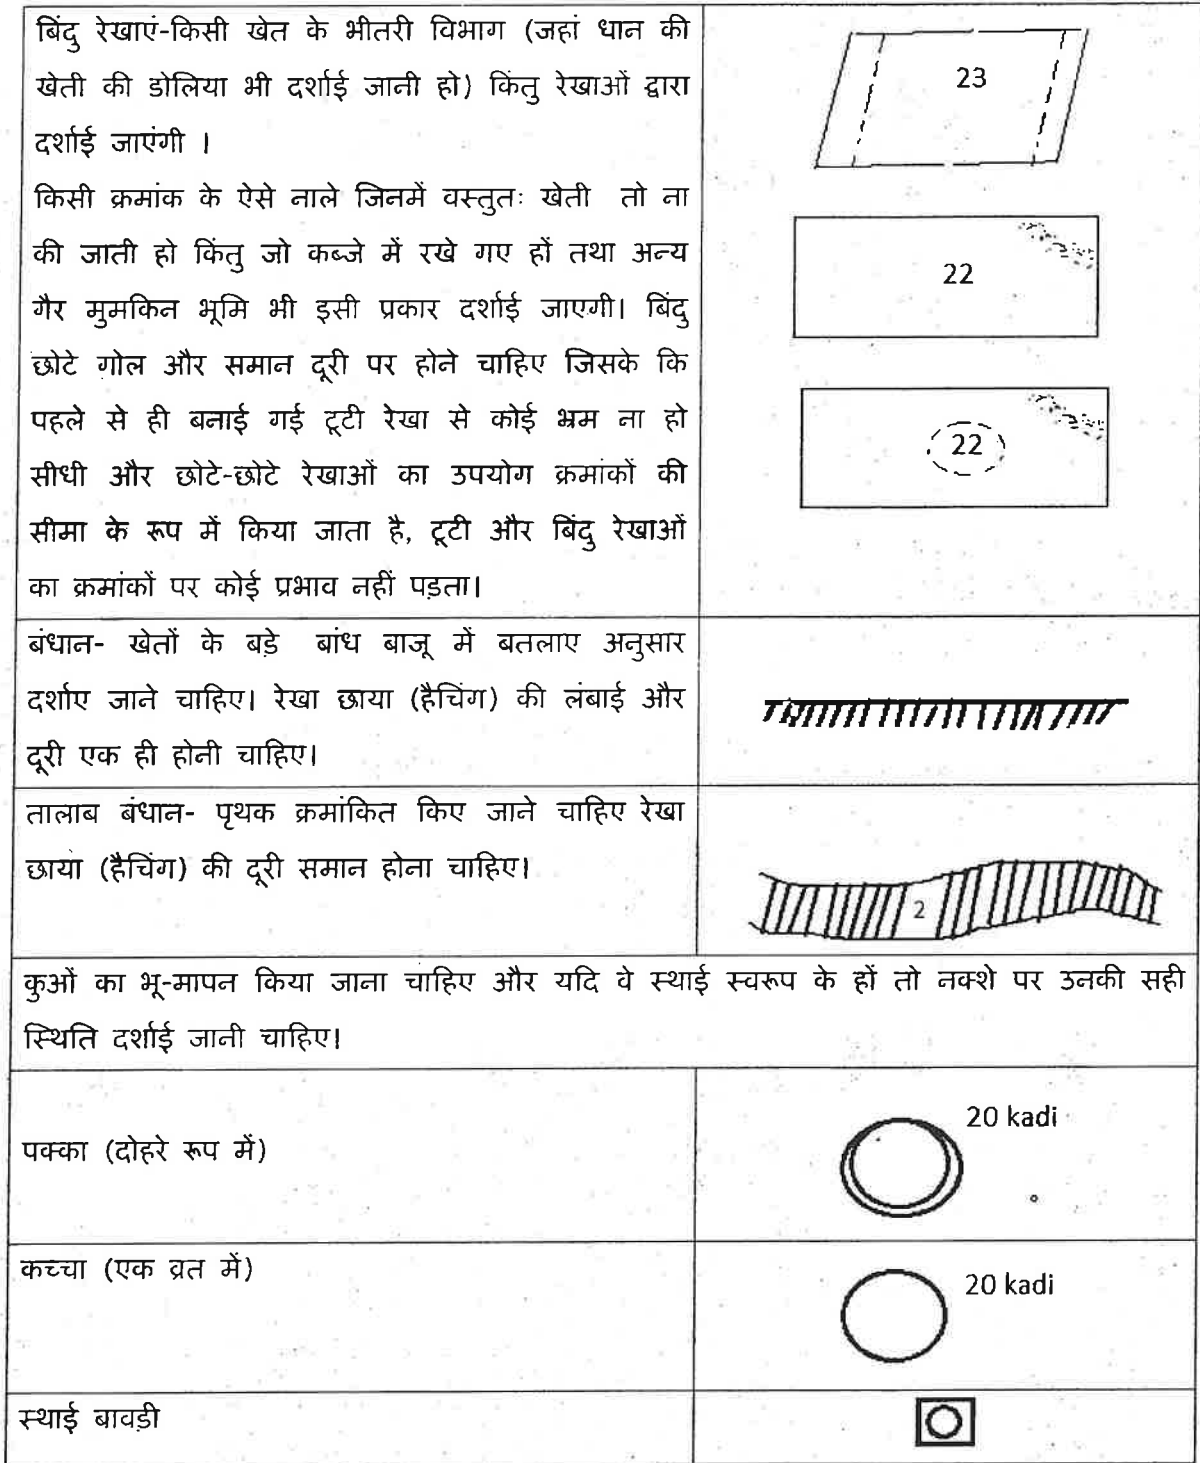 बिंदु रेखाएं-किसी खेत के भीतरी विभाग (जहां धान की
खेती की डोलिया भी दर्शाई जानी हो) किंतु रेखाओं द्वारा
दर्शाई जाएंगी ।
23
किसी क्रमांक के ऐसे नाले जिनमें वस्तुतः खेती तो ना
की जाती हो किंतु जो कब्जे में रखे गए हों तथा अन्य
गैर मुमकिन भूमि भी इसी प्रकार दर्शाई जाएगी। बिंदु
छोटे गोल और समान दूरी पर होने चाहिए जिसके कि
पहले से ही बनाई गई टूटी रेखा से कोई भ्रम ना हो
सीधी और छोटे-छोटे रेखाओं का उपयोग क्रमांकों की
सीमा के रूप में किया जाता है, टूटी और बिंदु रेखाओं
का क्रमांकों पर कोई प्रभाव नहीं पड़ता।
22
22
बंधान- खेतों के बड़े बांध बाजू में बतलाए अनुसार
दर्शाए जाने चाहिए। रेखा छाया (हैचिंग) की लंबाई और
दूरी एक ही होनी चाहिए।
तालाब बंधान- पृथक क्रमांकित किए जाने चाहिए रेखा
छाया (हैचिंग) की दूरी समान होना चाहिए।
2
कुओं का भू-मापन किया जाना चाहिए और यदि वे स्थाई स्वरूप के हों तो नक्शे पर उनकी सही
स्थिति दर्शाई जानी चाहिए।
पक्का (दोहरे रूप में)
20 kadi
कच्चा (एक व्रत में)
20 kadi
स्थाई बावड़ी